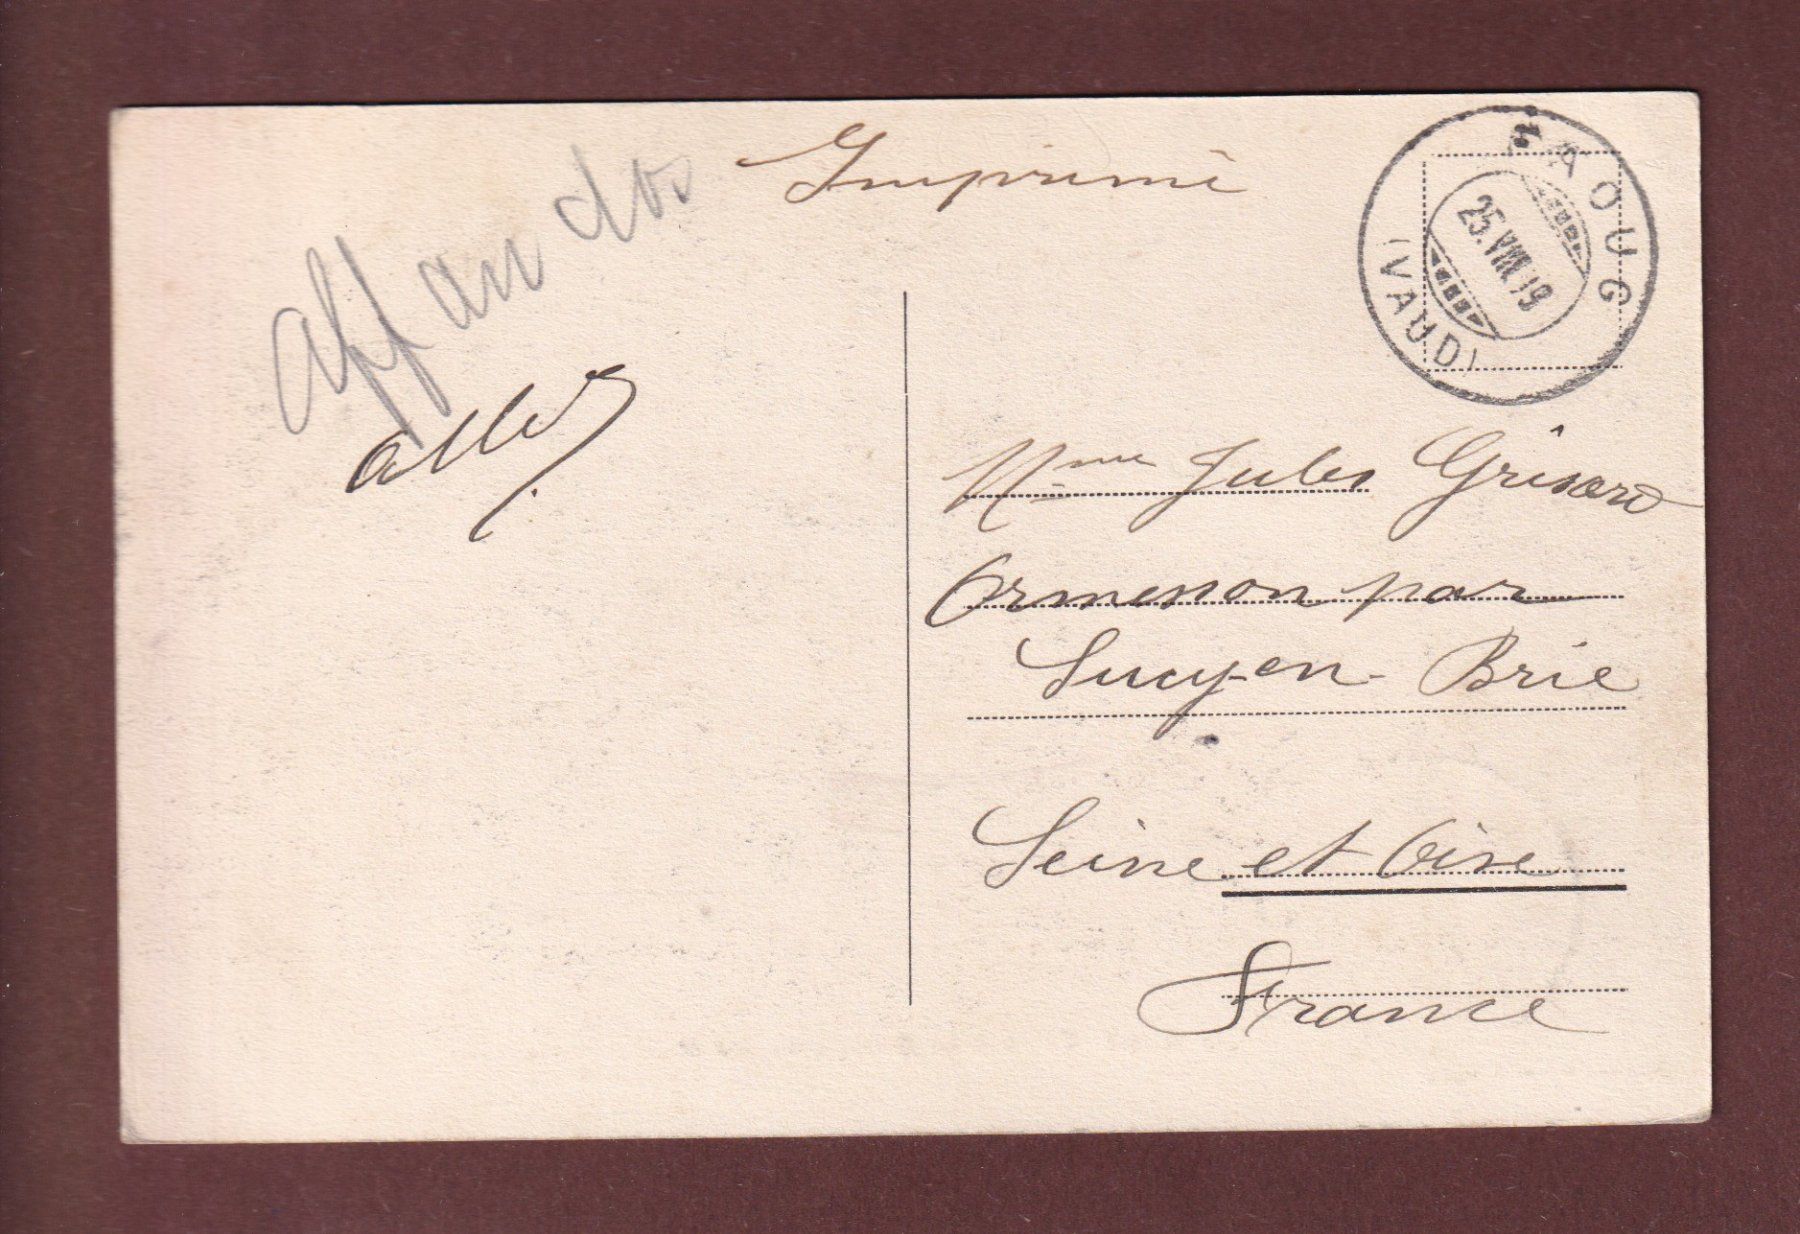 Imprimé
aff au dos
FAOUG
25.VIII.19
(VAUD)
Mme Jules Grisard
Ormesson par
Sucy-en-Brie
Seine et Oise
France